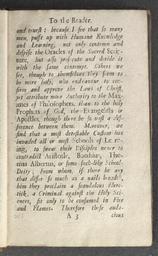 To the Reader.
and trust: because I see that so many
men, puft up with Humane Knowledge
and Learning, not only contemn and
despise the Oracles of the Sacred Scrip-
ture, but also prosecute and deride it
with the same contempt. Others we
see, though to themselves they seem to
be more holy, who endeavour to con-
firm and approve the Laws of Christ,
yet attribute more Authority to the Max-
imes of Philosophers, than to the holy
Prophets of God, the Evangelists or
Apostles, though there be so vast a dif-
ference between them. Moreover, we
find that a most detestable Custom has
invaded all or most Schools of Learn-
ing, to swear their Disciples never to
contradict Aristotle, Boethius, Tho-
mas Albertus, or some such-like School-
Deity. From whom, if there be any
that differ so much as a nails breadth,
him they proclaim a scandalous Here-
tick, a Criminal against the Holy Sci-
ences, fit only to be consumed in Fire
and Flames. Therefore these
A 3